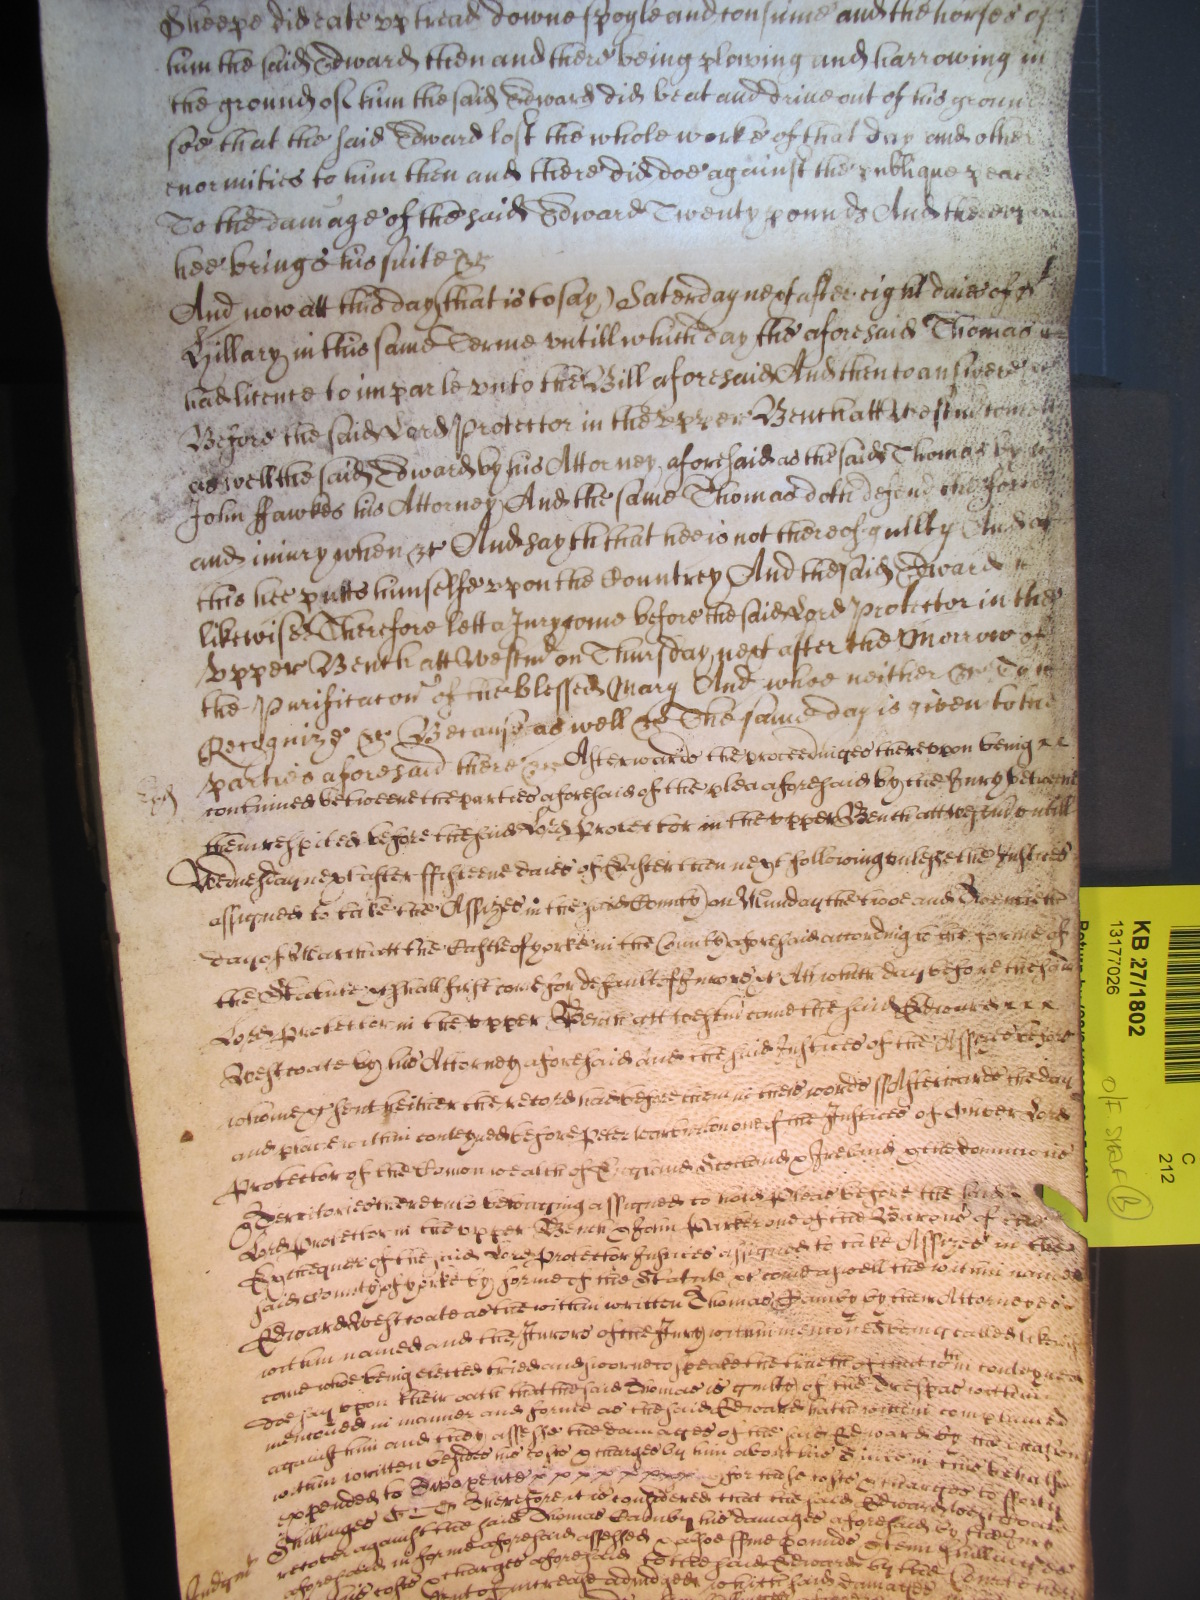 Sheepe did eate upp tread downe spoyle and consume and the horses of
him the said Edward then and there being plowing and harrowing in
the ground of him the said Edward did beat and drive out of his ground
soe that the said Edward lost the whole worke of that day and other
enormities to him then and there did doe against the publique peace
To the damage of the said Edward Twenty pounds And thereupon
hee brings his suite &c
And now att this day (that is to say) Saterday next after eight daies of St
Hillary in this same Terme untill which day the aforesaid Thomas
had licence to imparle unto the Bill aforesaid And then to answere
Before the said Lord Protector in the upper Bench att Westm come
as well the said Edward by his Attorney aforesaid as the said Thomas by
John ffawkes his Attorney And the same Thomas doth defend the force
and iniury when &c And sayth that hee is not thereof guilty And of
this hee putts himselfe upon the Countrey And the said Edward
likewise Therefore lett a Jury come before the said Lord Protector in the
Upper Bench att Westm on Thursday next after the Morrow of
the Purificacon of the blessed Mary And whoe neither &c To
Recognize &c Because as well &c The same day is given to the
parties aforesaid there &c Afterwards the proceedinges thereupon being
continued betweene the parties aforesaid of the plea aforesaid by the Jury betweene
them respited before the said Lord Protector in the upper Bench att Westm untill
Wednesday next after ffifteene daies of Easter then next following unlesse the Justices
assigned to take the Assizes in the said County on Munday the twoe and Twentieth
day of March att the Castle of Yorke in the County aforesaid according to the forme of
the Statute &c shall first come for default of Jurors &c Att which day before the said
Lord Protector in the upper Bench att Westm came the said Edward
Westcoate by his Attorney aforesaid and the said Justices of the Assizes before
whome &c sent hither their record had before them in these words ss Afterwards the day
and place within conteyned before Peter Warburton one of the Justices of Oliver Lord
Protector of the Comon wealth of England Scotland & Ireland & the dominions
& Territories thereunto belonging assigned to hold Pleas before the said
Lord Protector in the upper Bench & John Parker one of the Barons of the
Exchequer of the said Lord Protector Justices assigned to take Assizes in the
said County of Yorke by forme of the Statute &c come aswell the within named
Edward Westcoate as the within written Thomas by their Attorneyes
within named and the Jurors of the Jury within mencioned being called likewise
come whoe being elected tried and sworne to speake the trueth of the within conteyned
doe say upon their oath that the said Thomas is guilty of the Trespas within
mencioned in manner and forme as the said Edward hath within complained
against him and they assesse the damages of the said Edward by the occasion
within written besides his costs & charges by him about his Suite in this behalfe
expended to Twopence & for those costs & charges to fforty
Shillinges Therefore it is considered that the said Edward Westcoate
recover against the said Thomas his damages aforesaid by the Jury
aforesaid in forme aforesaid assessed & alsoe ffive pounds Tenn Shillinges
his costs & charges aforesaid to the said Edward by the Court
of increase adiudged which said damages
Judgmt
KB 27/1802
13177026
C
212
O/F START (B)